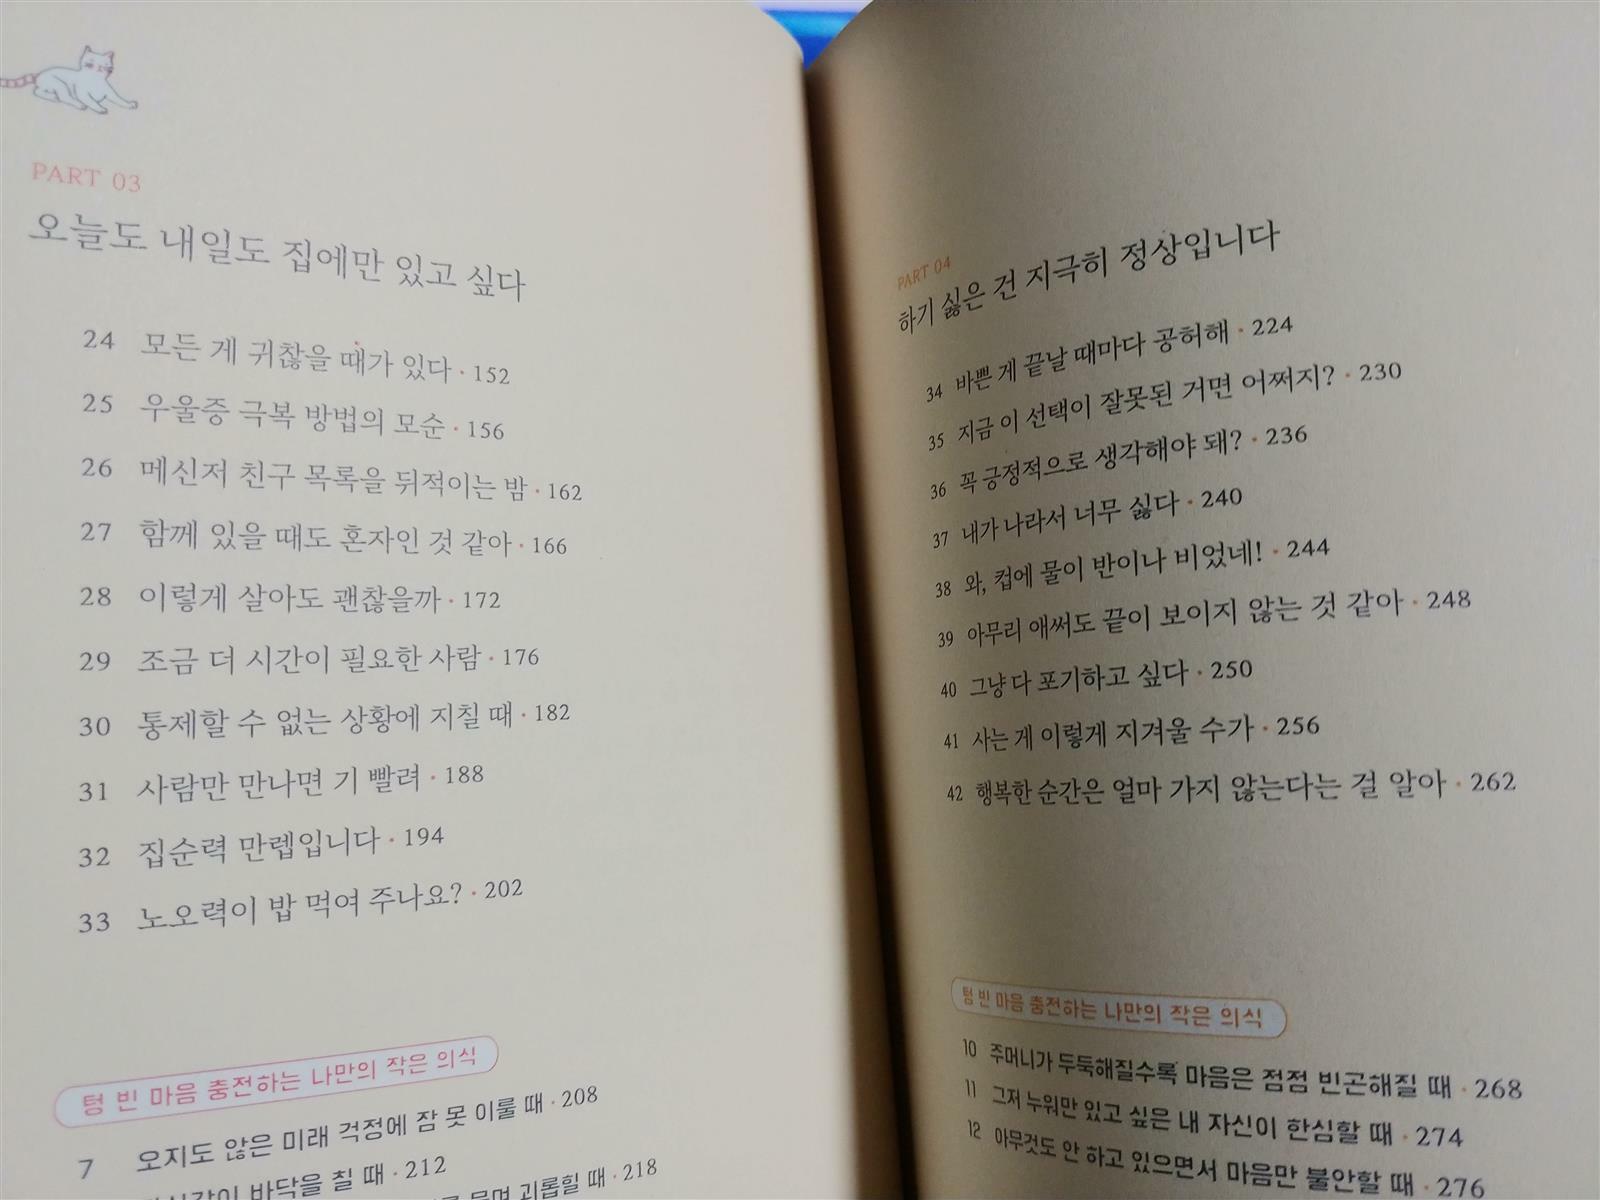 PART 03
오늘도 내일도 집에만 있고 싶다
24 모든 게 귀찮을 때가 있다 · 152
25 우울증 극복 방법의 모순 · 156
26 메신저 친구 목록을 뒤적이는 밤 · 162
27 함께 있을 때도 혼자인 것 같아 · 166
28 이렇게 살아도 괜찮을까 · 172
29 조금 더 시간이 필요한 사람 · 176
30 통제할 수 없는 상황에 지칠 때 · 182
31 사람만 만나면 기 빨려 · 188
32 집순력 만렙입니다 · 194
33 노오력이 밥 먹여 주나요? · 202
텅 빈 마음 충전하는 나만의 작은 의식
7 오지도 않은 미래 걱정에 잠 못 이룰 때 · 208
바닥을 칠 때 · 212
괴롭힐 때 · 218
PART 04
하기 싫은 건 지극히 정상입니다
34 바쁜 게 끝날 때마다 공허해 · 224
35 지금 이 선택이 잘못된 거면 어쩌지? · 230
36 꼭 긍정적으로 생각해야 돼? · 236
37 내가 나라서 너무 싫다 · 240
38 와, 컵에 물이 반이나 비었네! · 244
39 아무리 애써도 끝이 보이지 않는 것 같아 · 248
40 그냥 다 포기하고 싶다 · 250
41 사는 게 이렇게 지겨울 수가 · 256
42 행복한 순간은 얼마 가지 않는다는 걸 알아 · 262
텅 빈 마음 충전하는 나만의 작은 의식
10 주머니가 두둑해질수록 마음은 점점 빈곤해질 때 · 268
11 그저 누워만 있고 싶은 내 자신이 한심할 때 · 274
12 아무것도 안 하고 있으면서 마음만 불안할 때 · 276